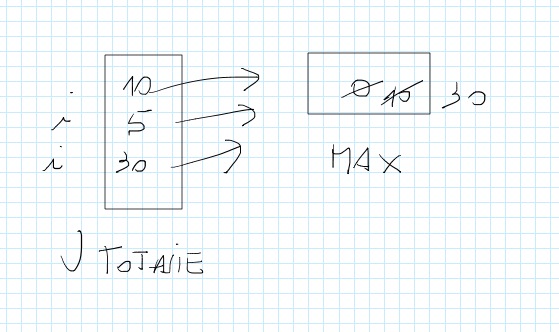 10
i 5
i 30
0 10 30
MAX
V TOTALE